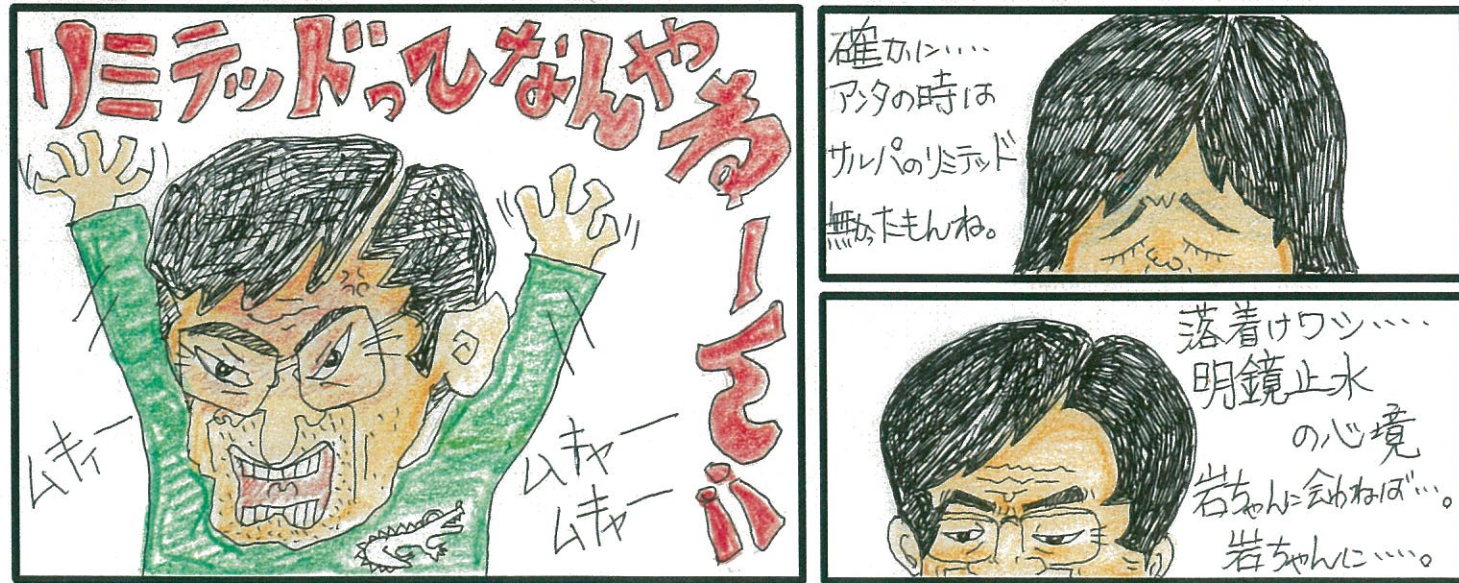 リミテッドってなんやねーん!!
ムキィー
ムキャー
ムキャー
確かに‥‥
アンタの時は
サルパのリミテッド
無かったもんね。
落着けワシ‥‥
明鏡止水
の心境
岩ちゃんに会わねば…。
岩ちゃんに‥‥。